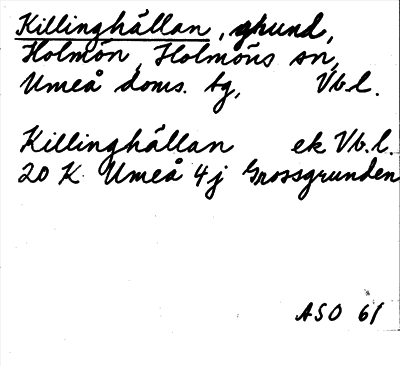 Killinghällan, grund,
Holmön, Holmöns sn,
Umeå doms. tg, Vb.l.
Killinghällan ek Vb.l.
20 K Umeå 4j Grossgrunden
ASO 61